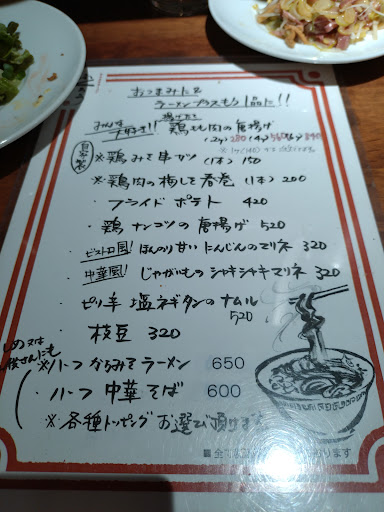 おつまみに&
ラーメンプラスもう1品に!!
揚げたて
みんな大好き!! 鶏もも肉の唐揚げ
(2ヶ)280 (4ヶ)560 (6ヶ)840
自家製
※鶏みそ串カツ (1本) 150
※鶏肉の梅しそ春巻 (1本) 200
・フライドポテト 420
・鶏ナンコツの唐揚げ 520
ビストロ風! ほんのり甘い にんじんのマリネ 320
中華風! じゃがいものシャキシャキマリネ 320
・ピリ辛 塩ネギタンのナムル 520
・枝豆 320
しめ又は
お子様にも
※ハーフ からみそラーメン 650
・ハーフ 中華そば 600
※各種トッピングお選び頂けます